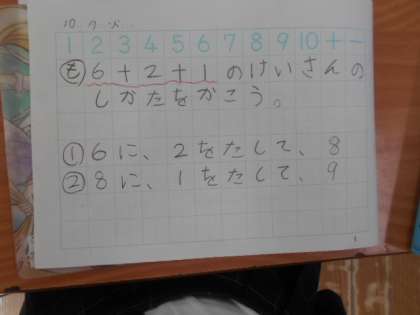 1 2 3 4 5 6 7 8 9 10 + −
も 6+2+1のけいさんの
しかたをかこう。
① 6に、2をたして、8
② 8に、1をたして、9